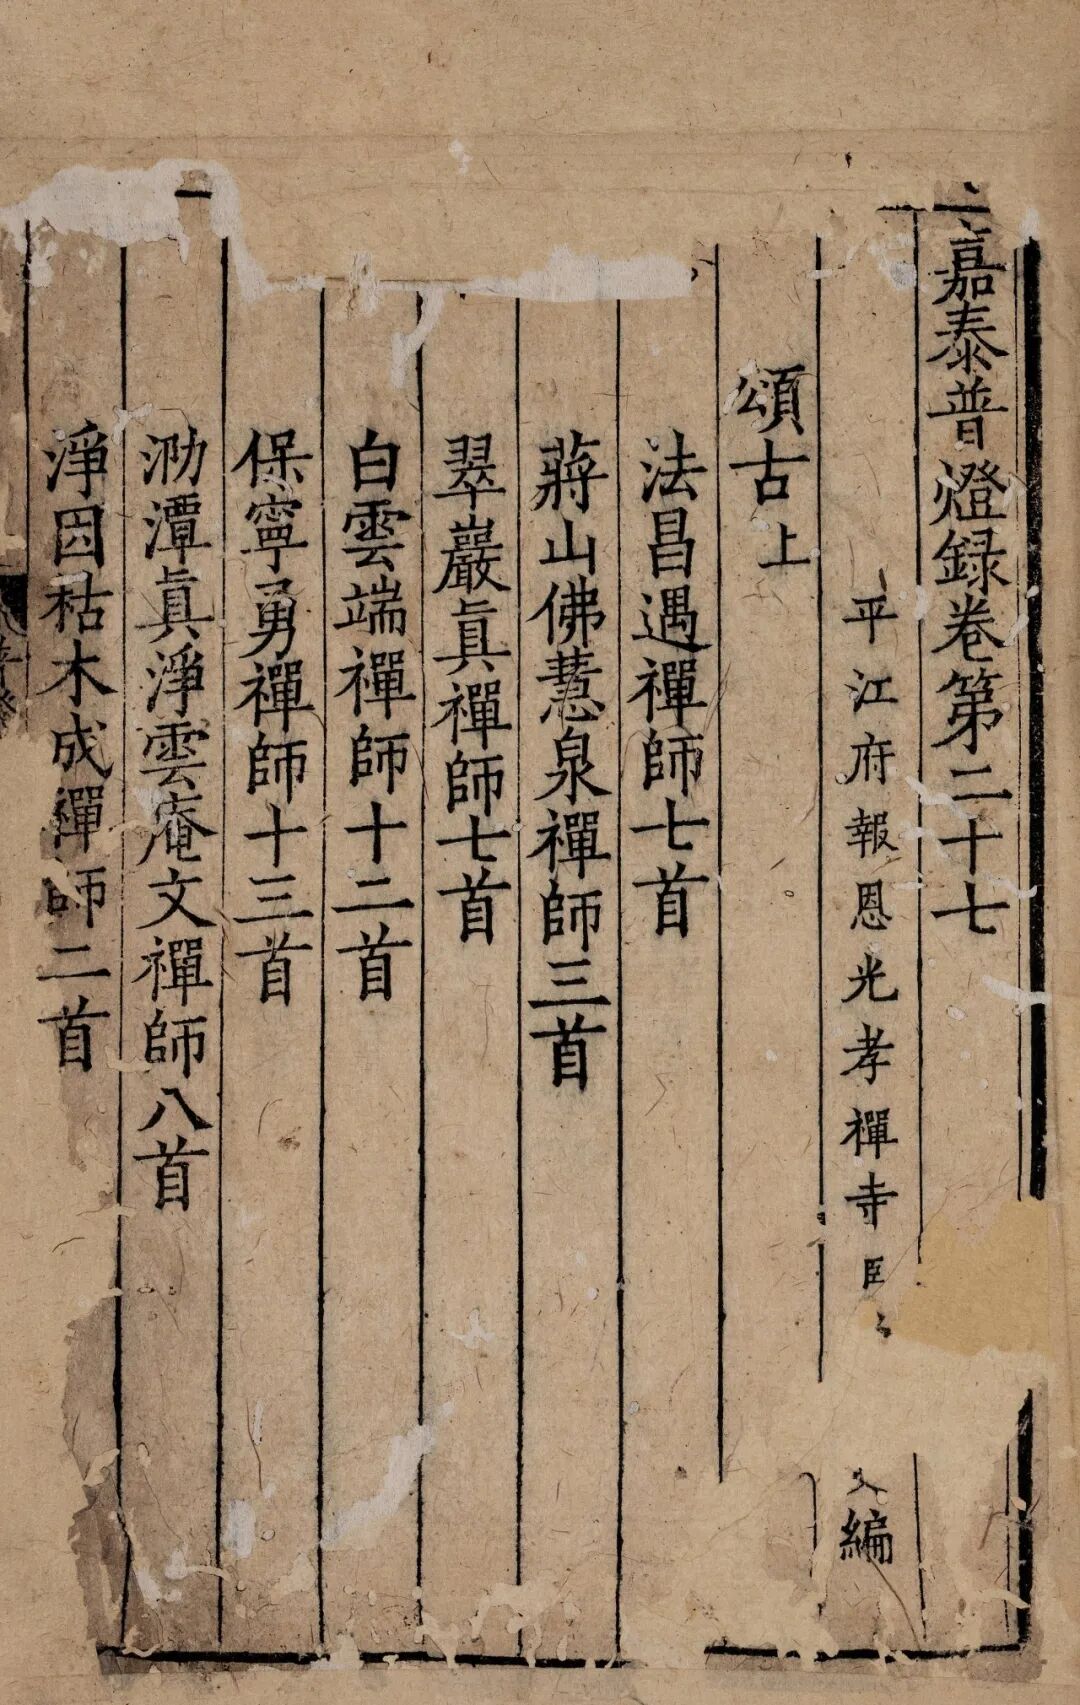 嘉泰普燈録卷第二十七
平江府報恩光孝禪寺臣
編
頌古上
法昌遇禪師七首
蔣山佛慧泉禪師三首
翠巖眞禪師七首
白雲端禪師十二首
保寧勇禪師十三首
泐潭眞淨雲庵文禪師八首
淨因枯木成禪師二首